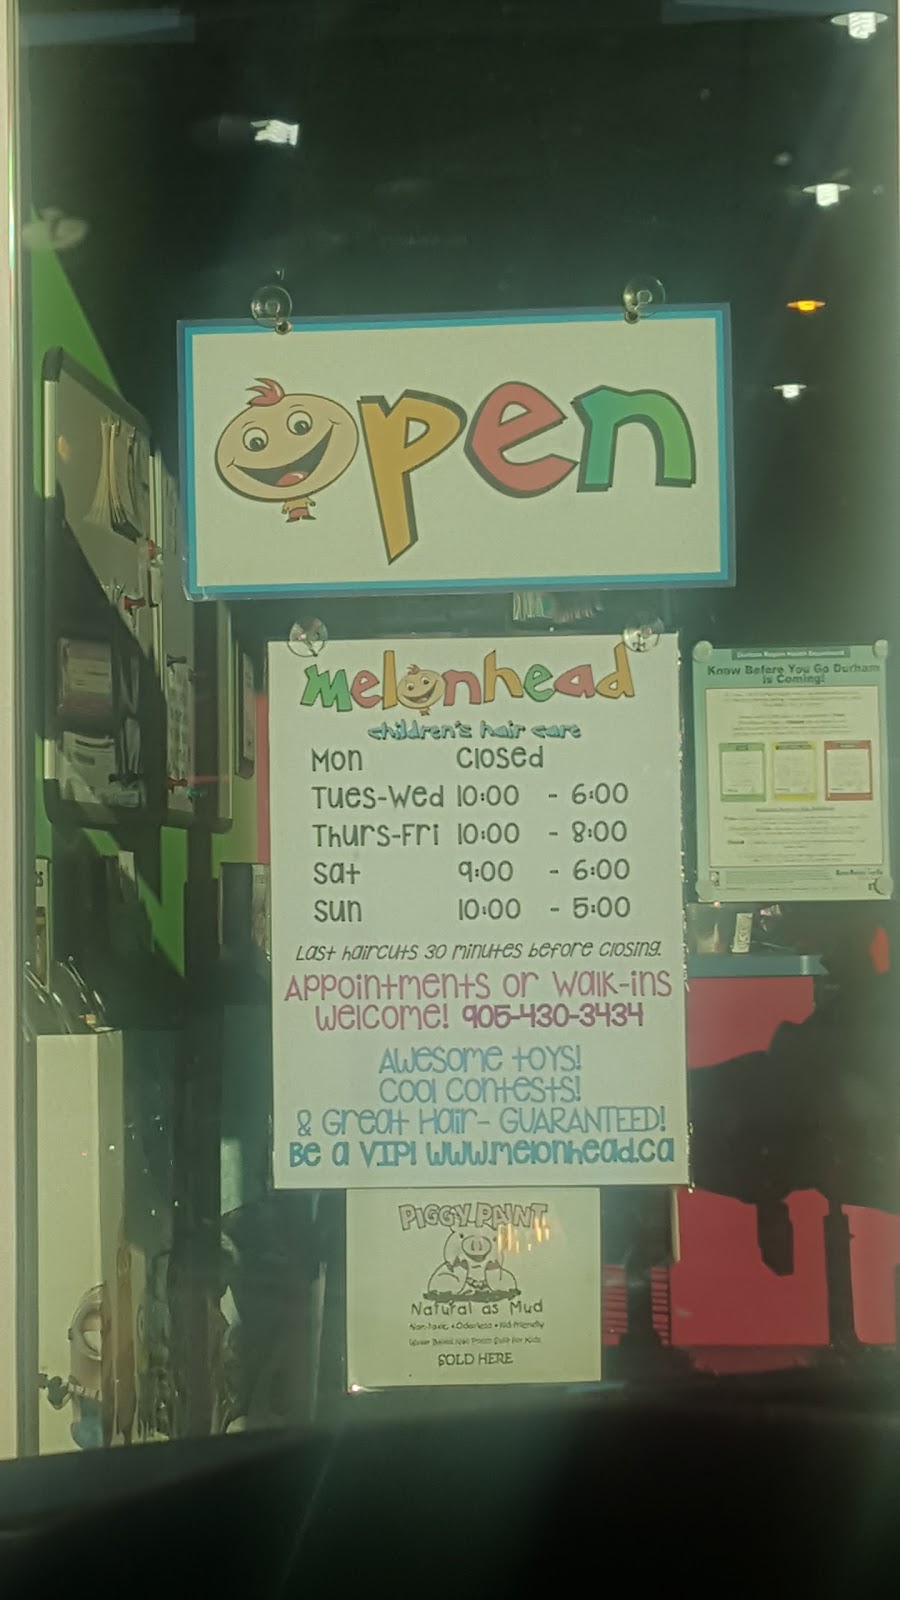 open
melonhead
children's hair care
Mon Closed
Tues-Wed 10:00 - 6:00
Thurs-Fri 10:00 - 8:00
Sat 9:00 - 6:00
Sun 10:00 - 5:00
Last haircuts 30 minutes before closing.
Appointments or walk-ins
welcome! 905-430-3434
Awesome toys!
Cool contests!
& Great Hair- GUARANTEED!
Be a VIP! www.melonhead.ca
Durham Region Health Department
Know Before You Go Durham
is Coming!
PIGGY PAINT
Natural as Mud
Non-toxic • Odorless • Kid-Friendly
SOLD HERE